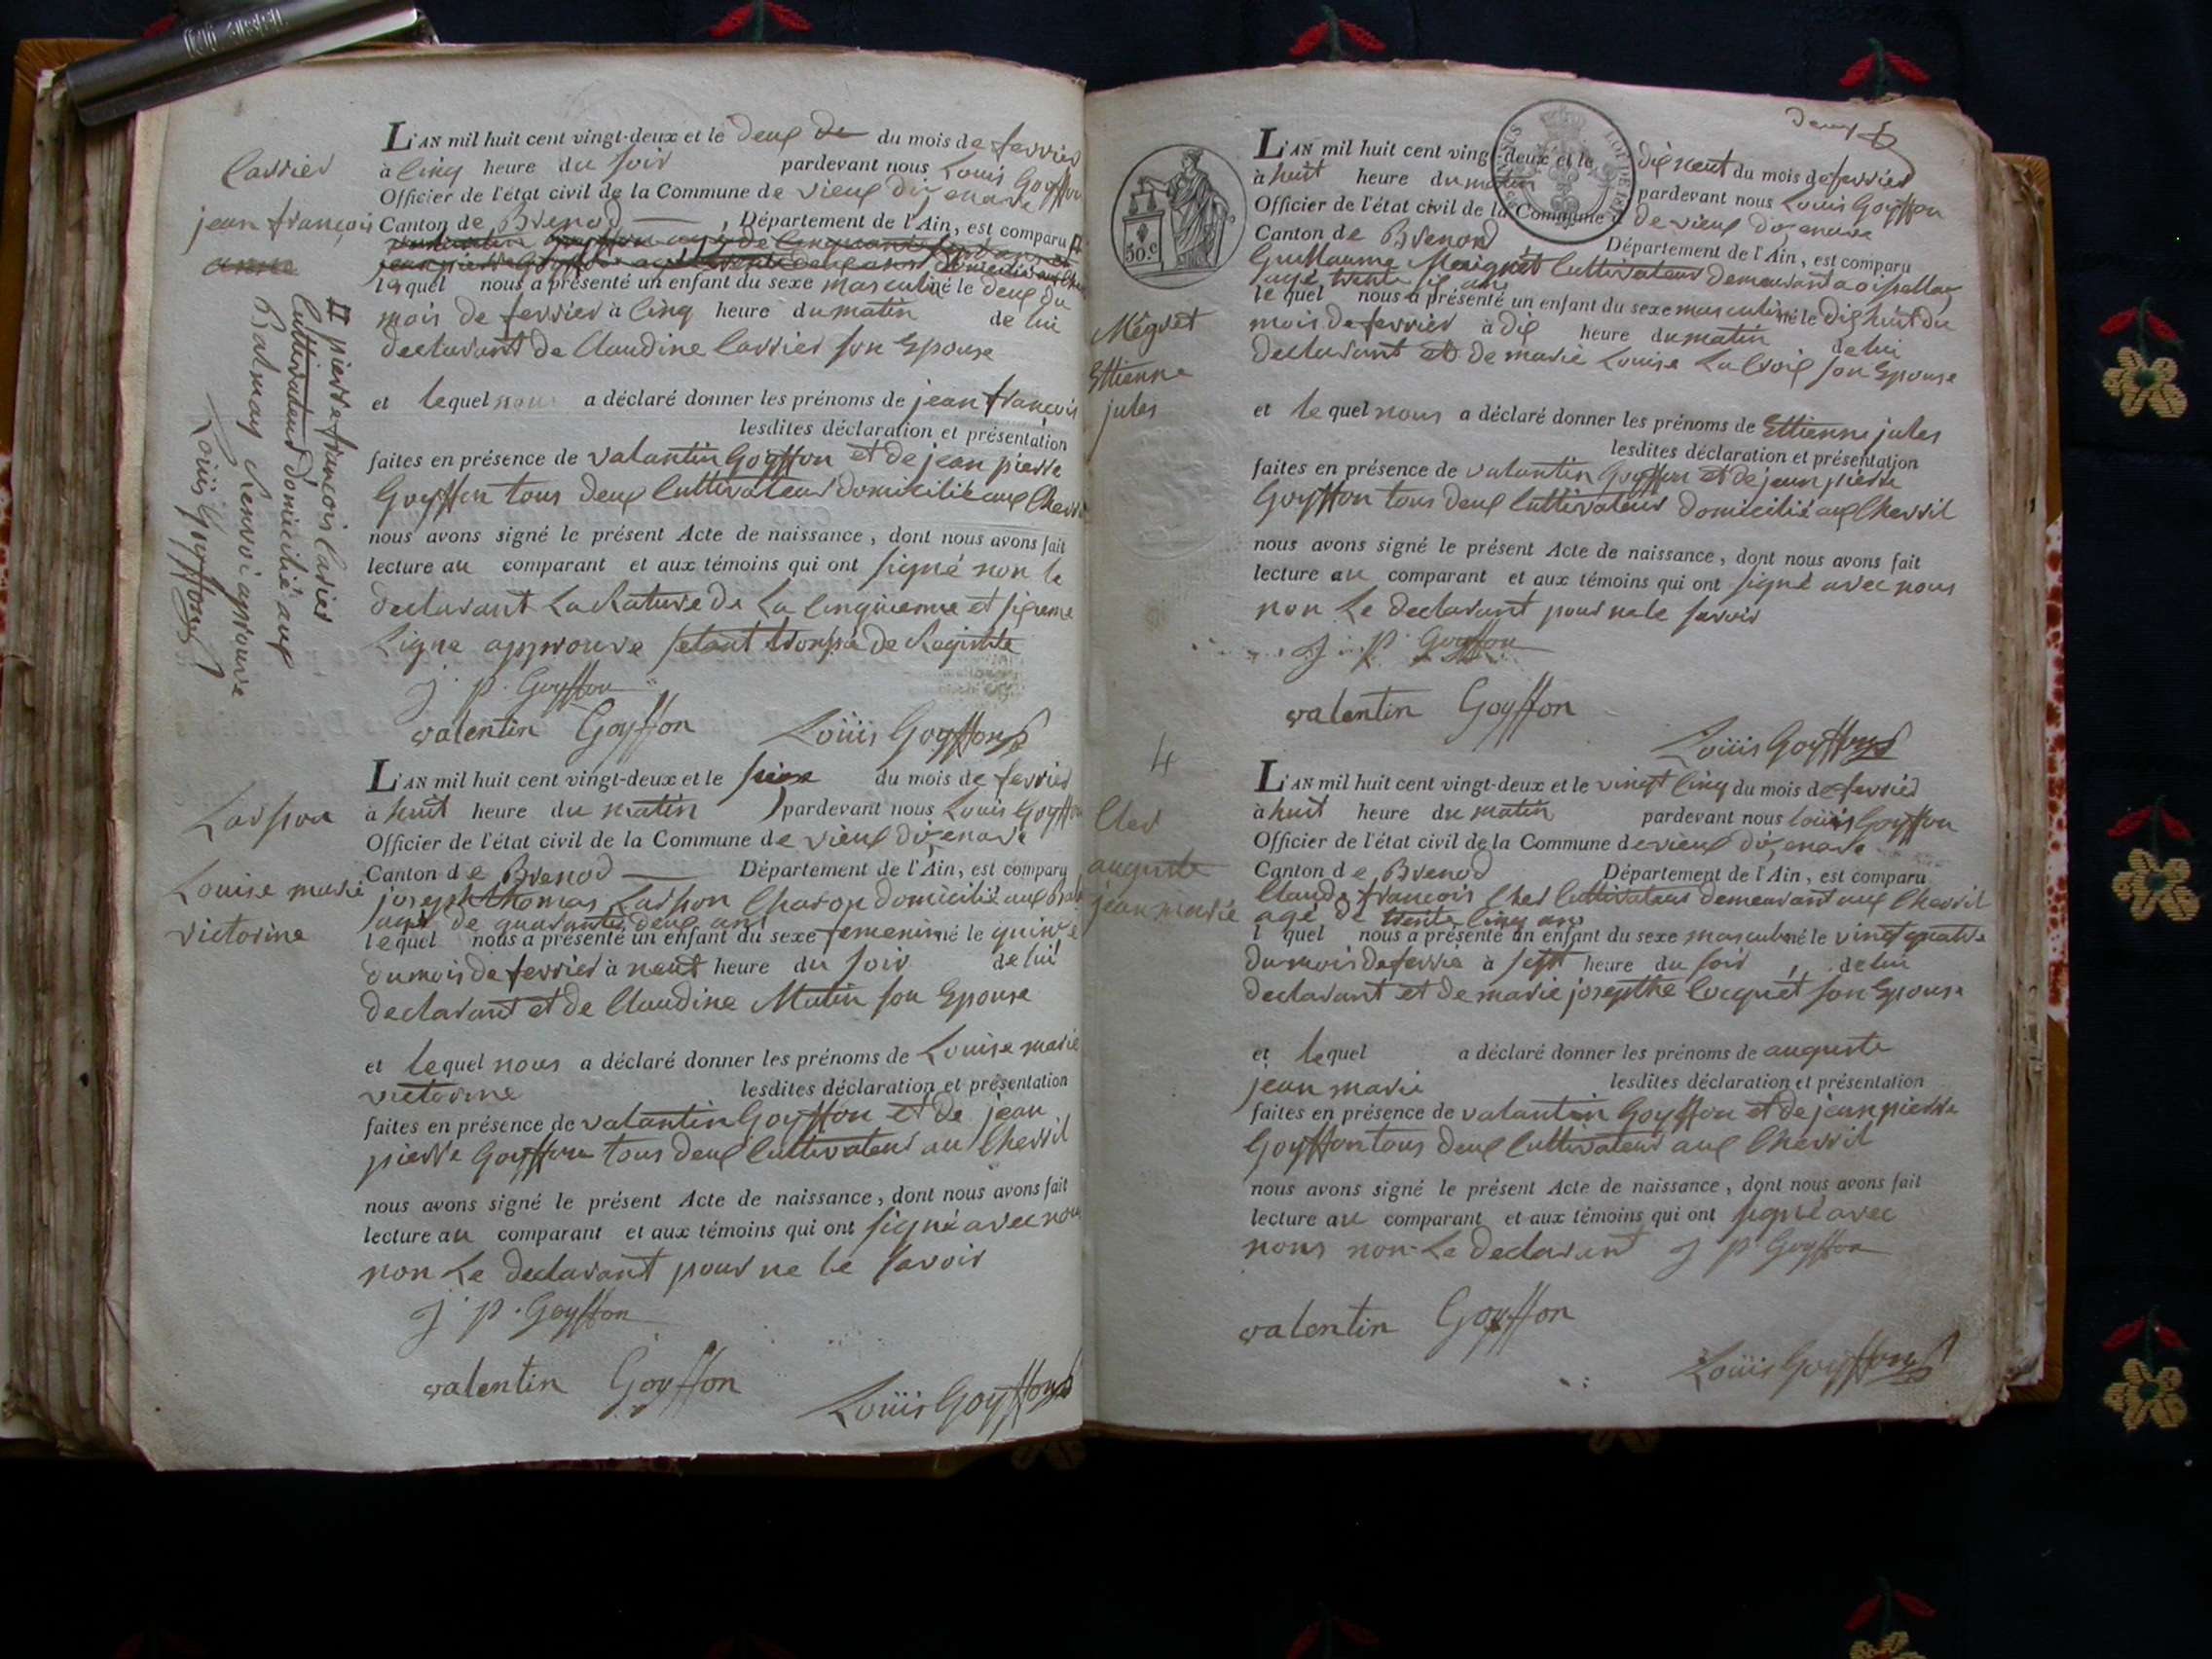 L'AN mil huit cent vingt-deux et le deux de du mois de fevrier
à cinq heure du soir pardevant nous Louis Goyffon
Officier de l'état civil de la Commune de vieux d'izenave
Canton de Brenod , Département de l'Ain, est comparu #
lequel nous a présenté un enfant du sexe masculin né le deux du
mois de fevrier à cinq heure du matin de lui
declarant de Claudine Carrier son Epouse
et lequel nous a déclaré donner les prénoms de jean françois
lesdites déclaration et présentation
faites en présence de valantin Goyffon et de jean pierre
Goyffon tous deux Cultivateur domicilié aux
nous avons signé le présent Acte de naissance, dont nous avons fait
lecture au comparant et aux témoins qui ont signé non le
declarant La Rature de La cinquieme et sixieme
Ligne approuve setant trompé de Registre
J. P. Goyffon
valentin Goyffon Louis Goyffon
Carrier
jean françois
# pierre francois Carrier
Cultivateur domicilié aux
Balmay Renvoi aprouve
Louis Goyffon
L'AN mil huit cent vingt-deux et le seize du mois de fevrier
à huit heure du matin pardevant nous Louis Goyffon
Officier de l'état civil de la Commune de vieux d'izenave
Canton de Brenod Département de l'Ain, est comparu
joseph thomas Larpon Charon domicilié aux
agé de quarante deux ans
lequel nous a présenté un enfant du sexe femenin né le quinze
du mois de fevrier à neuf heure du soir de lui
declarant et de Claudine Matin son Epouse
et lequel nous a déclaré donner les prénoms de Louise marie
victorine lesdites déclaration et présentation
faites en présence de valantin Goyffon et de jean
pierre Goyffon tous deux Cultivateur au Chevril
nous avons signé le présent Acte de naissance, dont nous avons fait
lecture au comparant et aux témoins qui ont signé avec nous
non Le declarant pour ne le savoir
J. P. Goyffon
valentin Goyffon Louis Goyffon
Larpon
Louise marie
victorine
50.c
L'AN mil huit cent vingt-deux et le dix neuf du mois de fevrier
à huit heure du matin pardevant nous Louis Goyffon
Officier de l'état civil de la Commune de vieux d'izenave
Canton de Brenod Département de l'Ain, est comparu
Guillaume Maignet Cultivateur demeurant a
agé trente six ans
lequel nous a présenté un enfant du sexe masculin né le dix huit du
mois de fevrier à dix heure du matin de lui
declarant et de marie Louise La Croix son Epouse
et lequel nous a déclaré donner les prénoms de Ettienne jules
lesdites déclaration et présentation
faites en présence de valantin Goyffon et de jean pierre
Goyffon tous deux Cultivateur domicilié aux Chevril
nous avons signé le présent Acte de naissance, dont nous avons fait
lecture au comparant et aux témoins qui ont signé avec nous
non Le declarant pour ne le savoir
J. P. Goyffon
valentin Goyffon
Louis Goyffon
Mégret
Ettienne
jules
4
L'AN mil huit cent vingt-deux et le vingt cinq du mois de fevrier
à huit heure du matin pardevant nous Louis Goyffon
Officier de l'état civil de la Commune de vieux d'izenave
Canton de Brenod Département de l'Ain, est comparu
Claude françois Cher Cultivateur demeurant aux Chevril
agé de trente cinq ans
l quel nous a présenté un enfant du sexe masculin né le vingt quatre
du mois de fevrié à sept heure du soir , de lui
declarant et de marie josepthe Cocquet son Epouse
et lequel a déclaré donner les prénoms de auguste
jean marie lesdites déclaration et présentation
faites en présence de valantin Goyffon et de jean pierre
Goyffon tous deux Cultivateur aux Chevril
nous avons signé le présent Acte de naissance, dont nous avons fait
lecture au comparant et aux témoins qui ont signé avec
nous non Le declarant J P Goyffon
valentin Goyffon
Louis Goyffon
Cher
auguste
jean marie